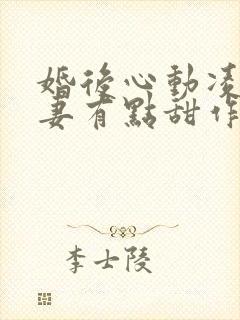 婚後心動凌
妻有點甜作
李士陵